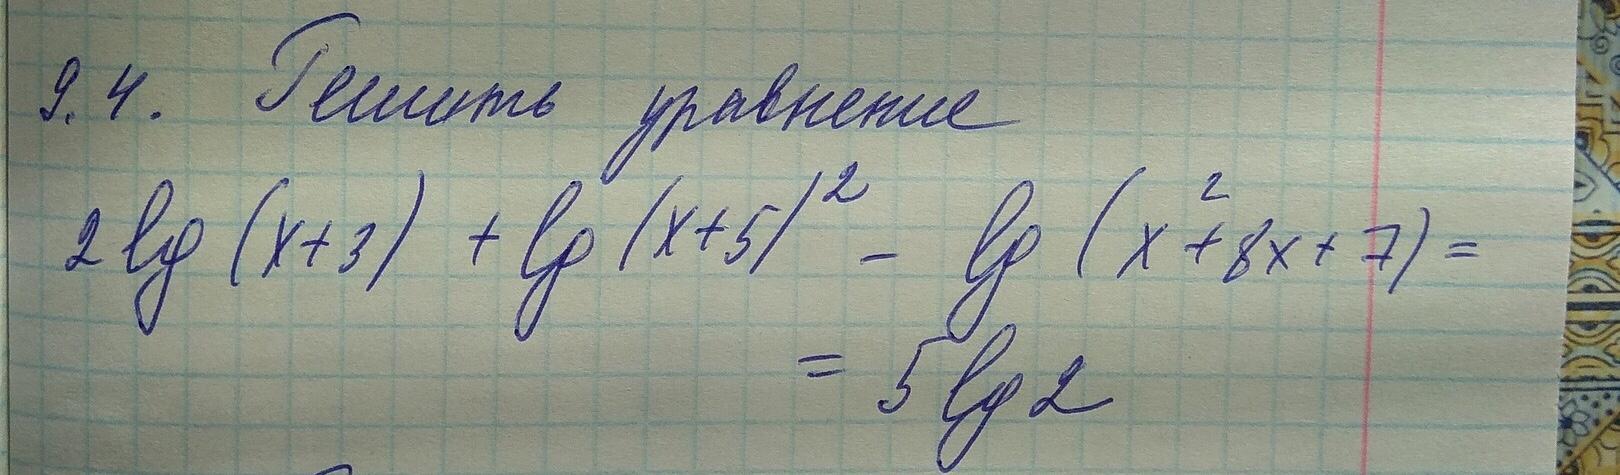 9.4. Решить уравнение
2 lg (x+3) + lg (x+5)² - lg (x²+8x+7) =
= 5 lg 2